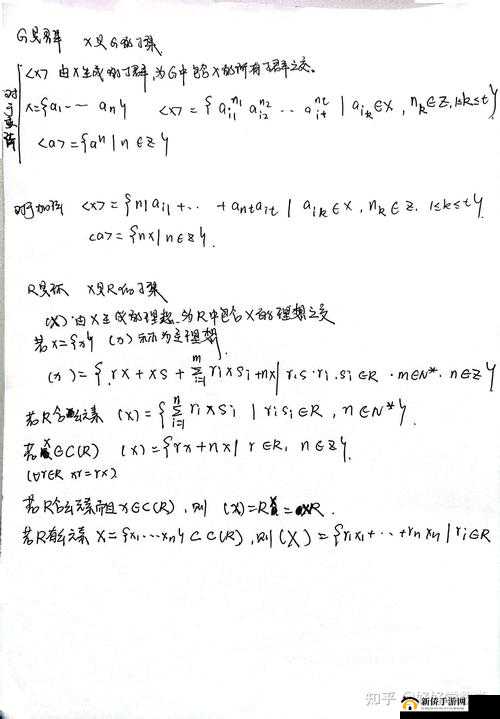 G是群 X是G的子集
<X> 由X生成的子群,为G中包含X的所有子群之交。
对于乘法
X={a₁ ⋯ aₙ} <X> = { a_{i1}^{n₁} a_{i2}^{n₂} ⋯ a_{it}^{n_t} | a_{ik}∈X, n_k∈Z, 1≤k≤t}
<a>={aⁿ | n∈Z}
对于加法 <X>={n₁a_{i1} + ⋯ + a_{nt}a_{it} | a_{ik}∈X, n_k∈Z. 1≤k≤t}
<a>={nx | n∈Z}.
R是环 X是R的子集
(X) 由X生成的理想.为R中包含X的理想之交
若X={x} (x) 称为主理想.
(x)={ rx + xs + ∑_{i=1}^{m} r_i x s_i + nx | r.s.r_i.s_i∈R . m∈N*. n∈Z}
若R含幺元素 (x)={∑_{i=1}^{n} r_i x s_i | r_i s_i∈R, n∈N*}.
若x∈C(R) (x)={rx+nx | r∈R, n∈Z}.
(∀r∈R xr=rx)
若R含幺元素而且x∈C(R), 则 (x)=Rx=xR.
若R有幺元素 X={x₁⋯xₙ}⊂C(R), 则(X)={r₁x₁+⋯+rₙxₙ | r_i∈R
知乎
新侨手游网